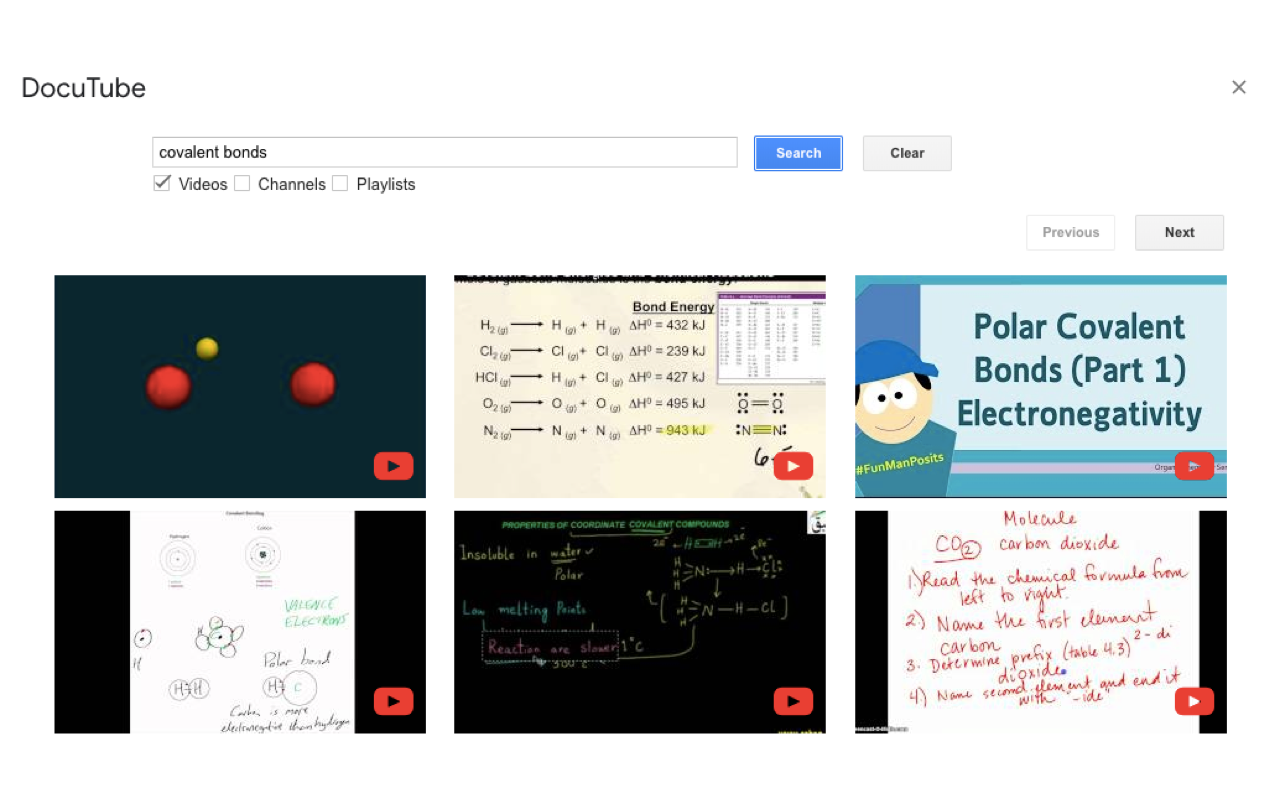 DocuTube
×
covalent bonds
Search
Clear
Videos
Channels
Playlists
Previous
Next
Bond Energy
H2 (g) → H (g) + H (g) ΔH⁰ = 432 kJ
Cl2 (g) → Cl (g) + Cl (g) ΔH⁰ = 239 kJ
HCl (g) → H (g) + Cl (g) ΔH⁰ = 427 kJ
O2 (g) → O (g) + O (g) ΔH⁰ = 495 kJ
N2 (g) → N (g) + N (g) ΔH⁰ = 943 kJ
O=O
:N≡N:
Polar Covalent
Bonds (Part 1)
Electronegativity
#FunManPosits
Covalent Bonding
Hydrogen
Carbon
VALENCE
ELECTRONS
H
H
Polar bond
H H
H C
Carbon is more
electronegative than hydrogen
PROPERTIES OF COORDINATE COVALENT COMPOUNDS
Insoluble in water
Polar
Low melting Points
Reaction are slower
Molecule
CO2 carbon dioxide
1.) Read the chemical formula from
left to right.
2.) Name the first element
carbon
3. Determine prefix (table 4.3) 2-di
dioxide
4.) Name second element and end it
with "-ide"